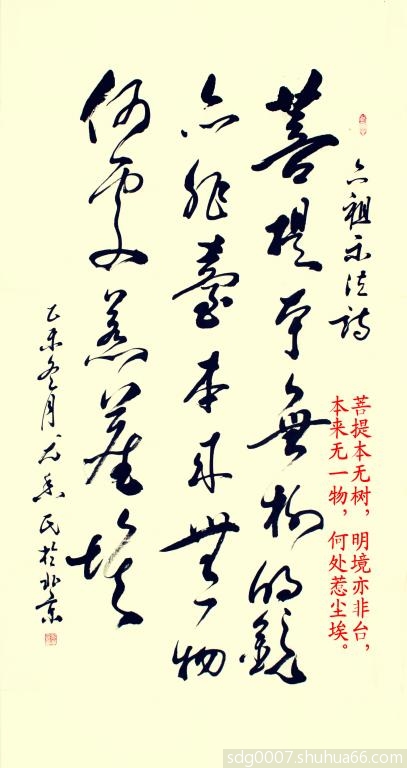 六祖示法詩
菩提本無樹明鏡
亦非臺本來無一物
何處惹塵埃
乙未冬月尤民於北京
菩提本无树，明境亦非台，
本来无一物，何处惹尘埃。
sdg0007.shuhua66.com